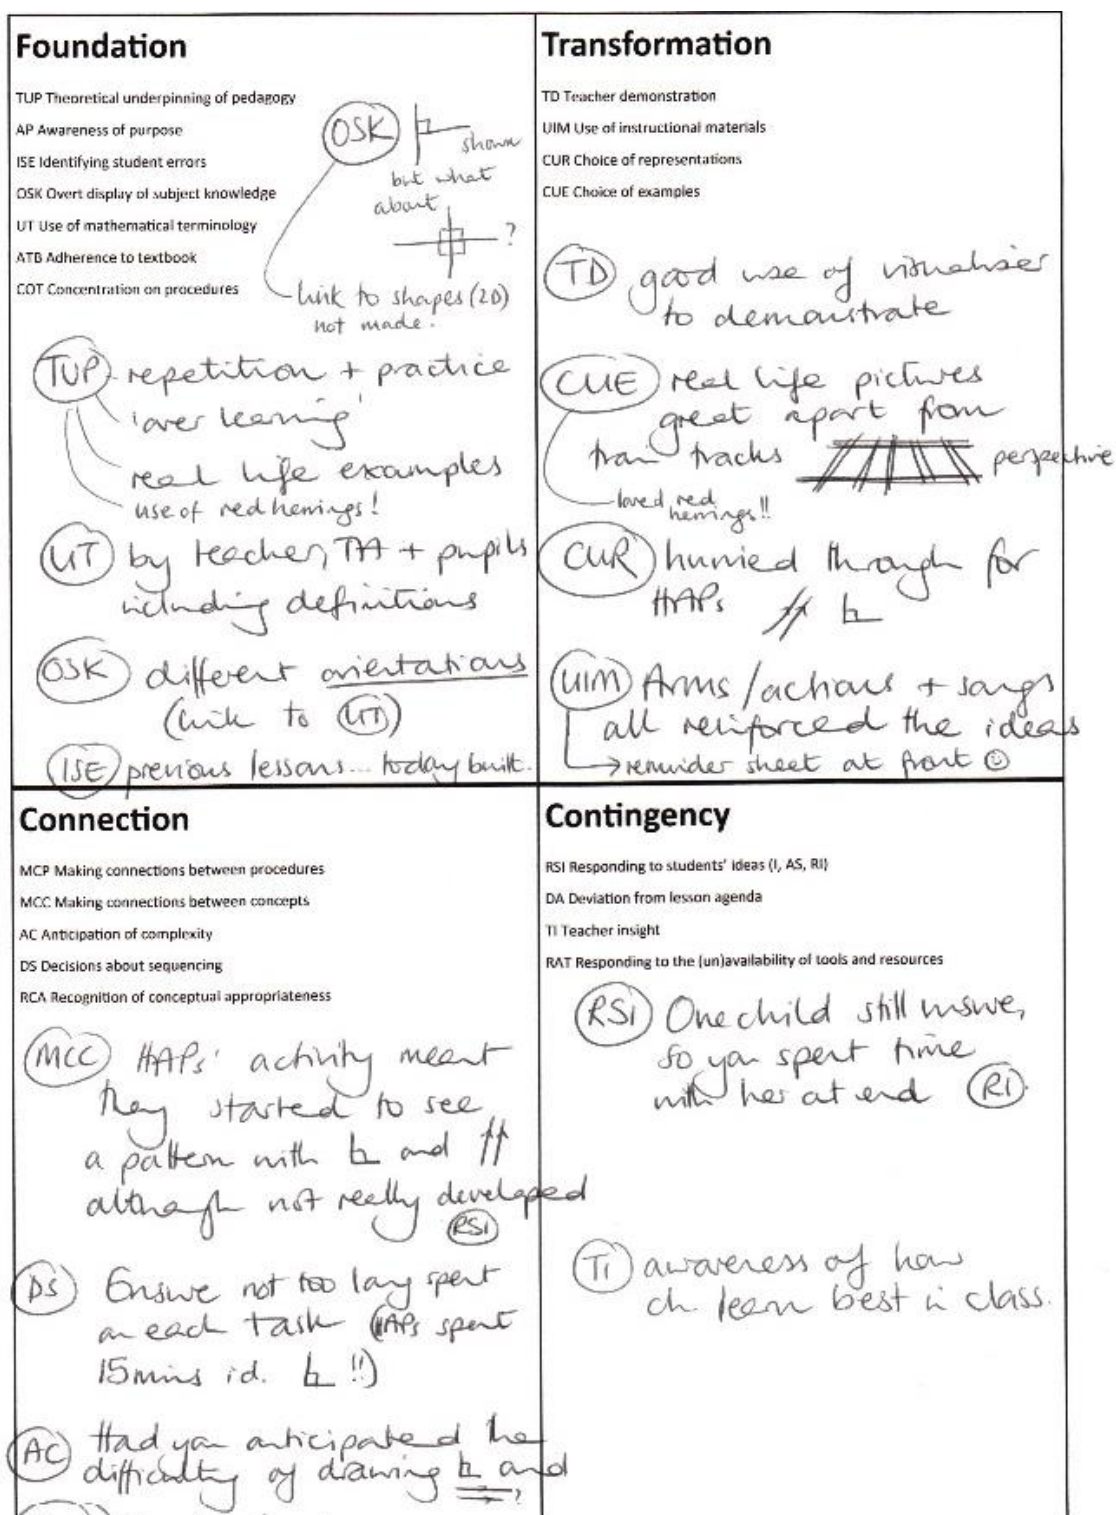 Foundation
TUP Theoretical underpinning of pedagogy
AP Awareness of purpose
ISE Identifying student errors
OSK Overt display of subject knowledge
UT Use of mathematical terminology
ATB Adherence to textbook
COT Concentration on procedures
OSK
shown
but what
about
?
link to shapes (2D)
not made.
TUP repetition + practice
'over learning'
real life examples
use of red herrings!
UT by teacher, TA + pupils
including definitions
OSK different orientations
(link to UT)
ISE previous lessons... today built.
Transformation
TD Teacher demonstration
UIM Use of instructional materials
CUR Choice of representations
CUE Choice of examples
TD good use of visualiser
to demonstrate
CUE real life pictures
great apart from
train tracks perspective
loved red
herrings!!
CUR hurried through for
HAPs
UIM Arms/actions + songs
all reinforced the ideas
reminder sheet at front
Connection
MCP Making connections between procedures
MCC Making connections between concepts
AC Anticipation of complexity
DS Decisions about sequencing
RCA Recognition of conceptual appropriateness
MCC HAPs' activity meant
they started to see
a pattern with and
although not really developed
RSI
DS Ensure not too long spent
on each task (HAPs spent
15mins id. !!)
AC Had you anticipated the
difficulty of drawing and
?
Contingency
RSI Responding to students' ideas (I, AS, RI)
DA Deviation from lesson agenda
TI Teacher insight
RAT Responding to the (un)availability of tools and resources
RSI One child still unsure,
so you spent time
with her at end RI
TI awareness of how
ch. learn best in class.